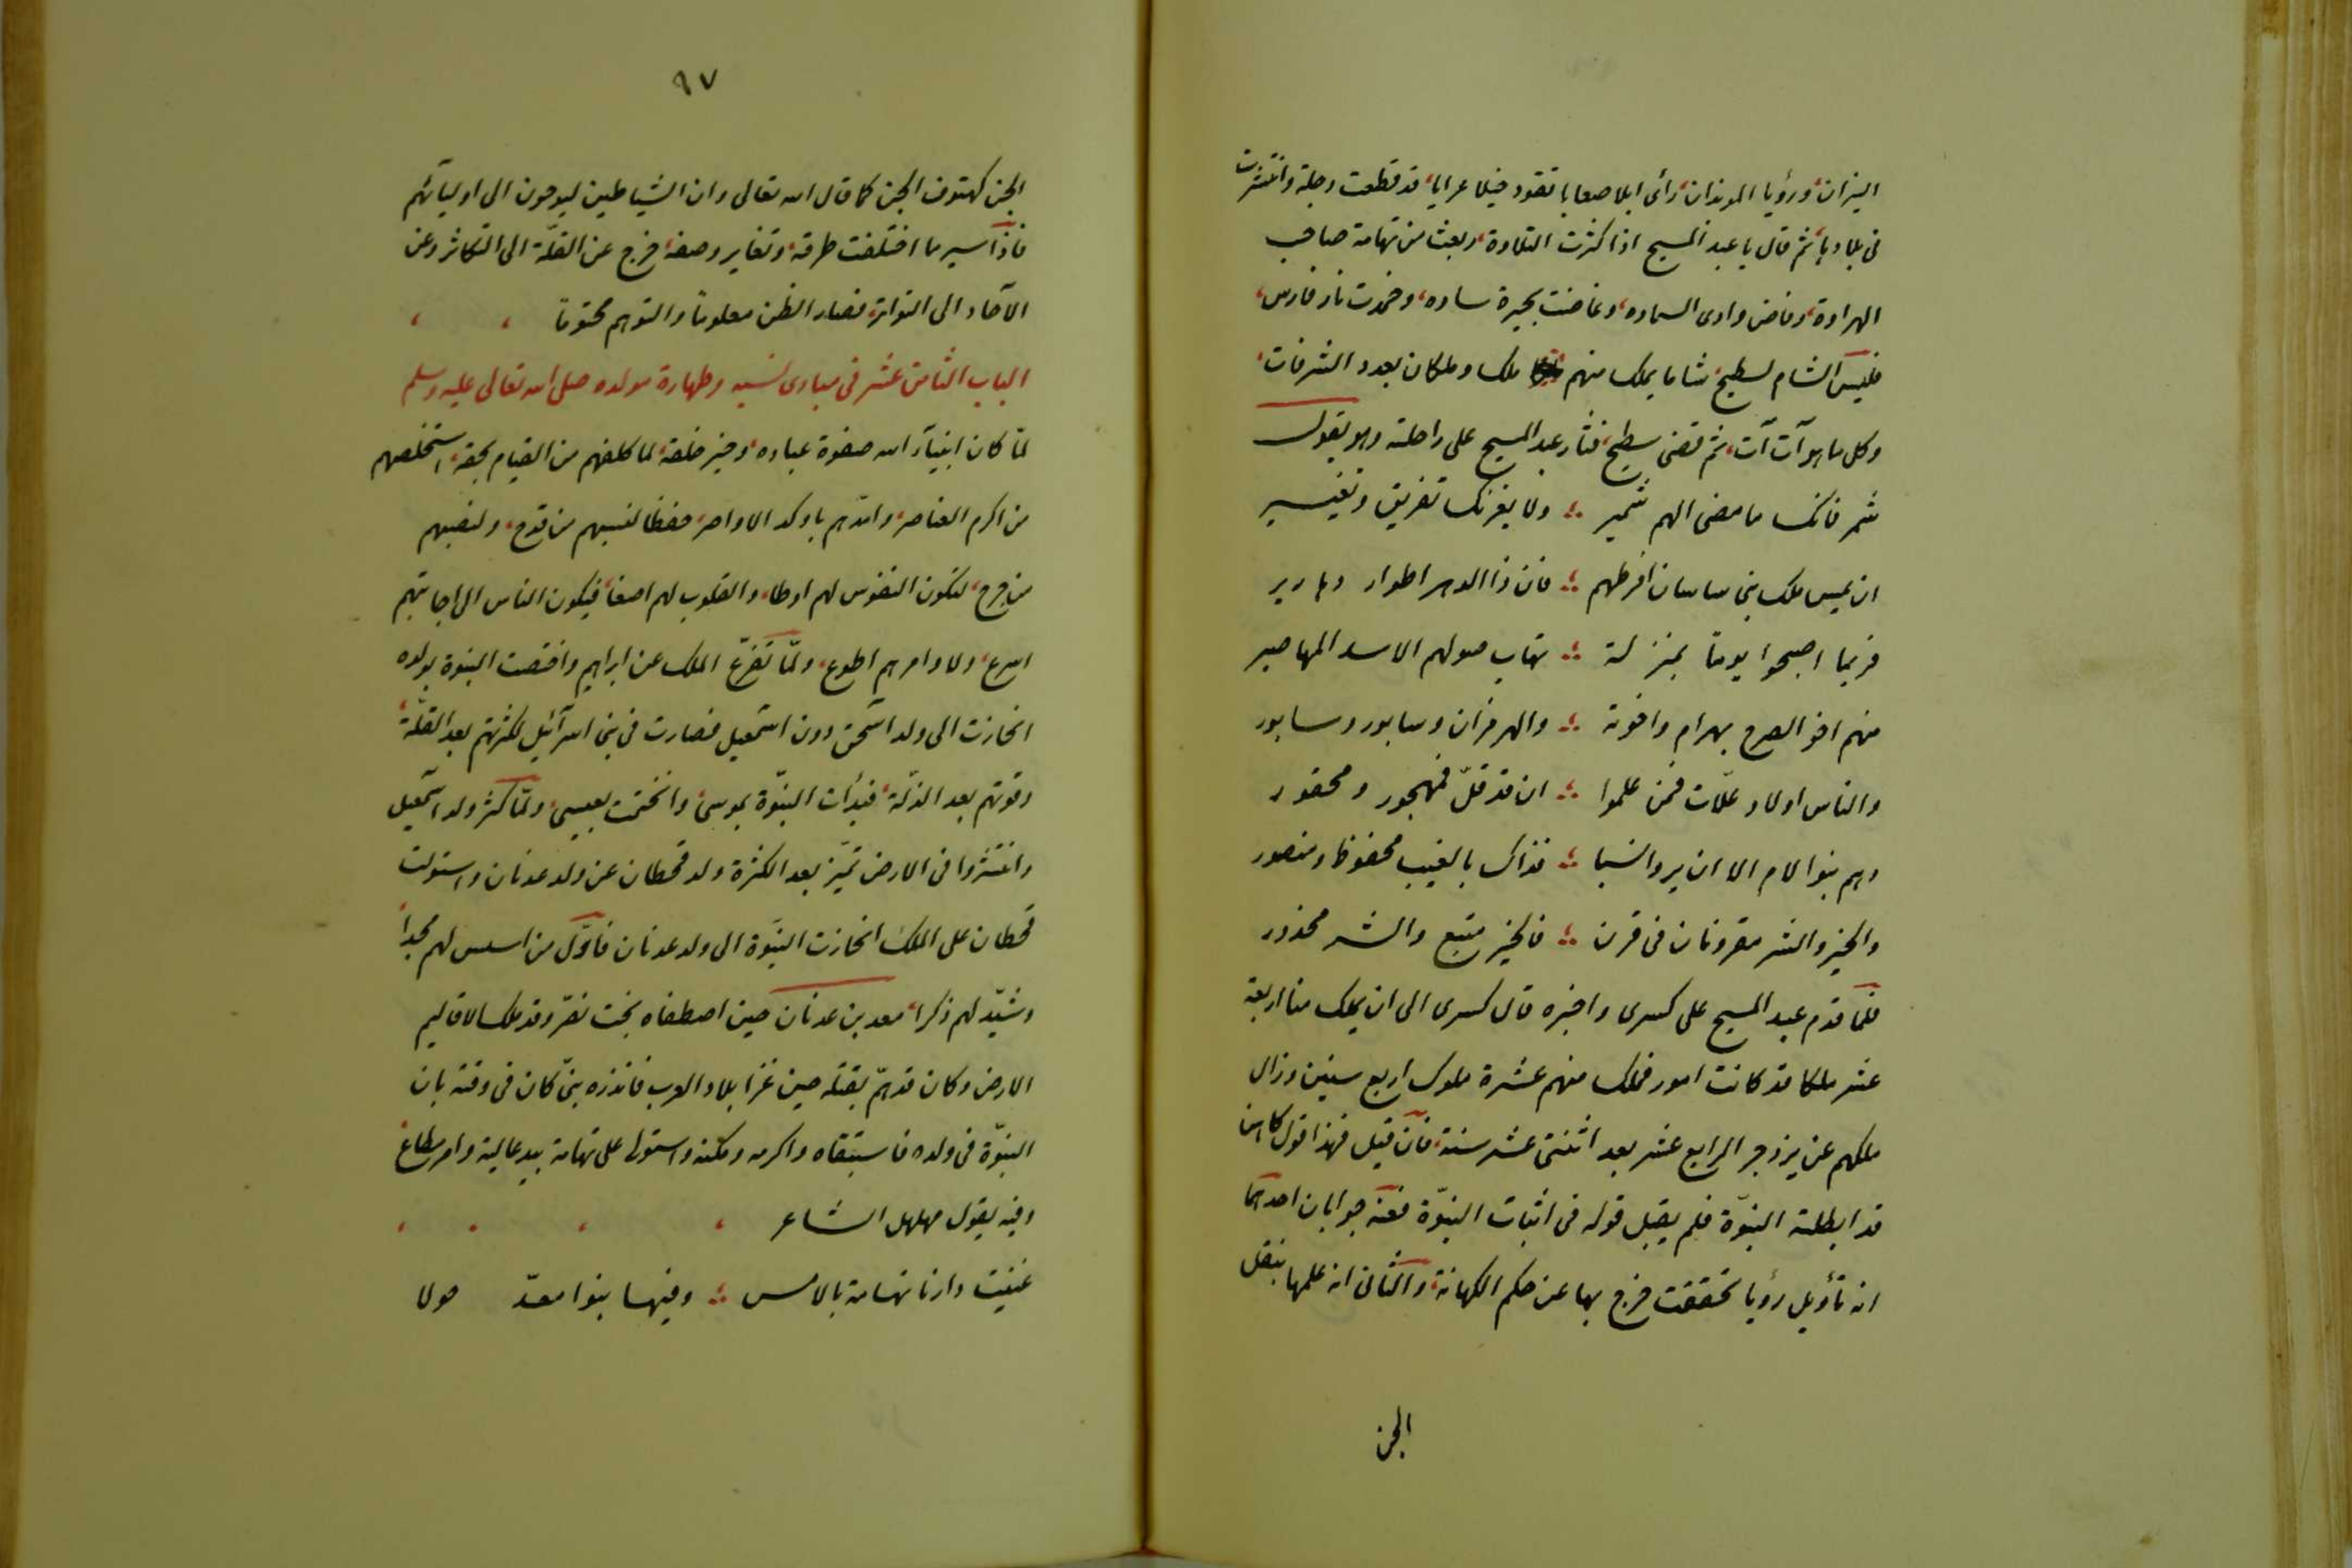 النيران، ورؤيا الموبذان، رأى ابلا صعابا تقود خيلا عرابا، قد قطعت دجلة وانتشرت
فى بلادها، ثم قال يا عبد المسيح اذا كثرت التلاوة، وبعث من تهامة صاحب
الهراوة، وفاض وادى السماوه، وغاضت بحيرة ساوه، وخمدت نار فارس،
فليس الشام لسطيح شاما يملك منهم ملك وملكان بعدد الشرفات،
وكل ما هو آت آت، ثم قضى سطيح، فثار عبد المسيح على راحلته وهو يقول
شمر فانك ما مضى الهم شمير ؞ ولا يغرنك تفريق وتغيير
ان يمس ملك بنى ساسان افرطهم ؞ فان ذا الدهر اطوار دهارير
فربما اصبحوا يوماً بمنزلة ؞ تهاب صولهم الاسد المهاصير
منهم اخو الصرح بهرام واخوته ؞ والهرمزان وسابور وسابور
والناس اولاد علّات فمن علموا ؞ ان قد قلّ فمهجور ومحقور
وهم بنوا الام الا ان يروا نشبا ؞ فذاك بالغيب محفوظ ومنصور
والخير والشر مقرونان فى قرن ؞ فالخير متبع والشر محذور
فلما قدم عبد المسيح على كسرى واخبره قال كسرى الى ان يملك منا اربعة
عشر ملكا قد كانت امور فملك منهم عشرة ملوك اربع سنين وزال
ملكهم عن يزدجر الرابع عشر بعد اثنتى عشر سنة، فان قيل فهذا قول كاهن
قد ابطلته النبوّة فلم يقبل قوله فى اثبات النبوّة فعنه جوابان احدهما
انه تأويل رؤيا تحققت خرج بها عن حكم الكهانة، والثانى انه علمها بنقل
الجن
٩٧
الجن كهتوف الجن كما قال الله تعالى وان الشياطين ليوحون الى اوليائهم
فاذا سير ما اختلفت طرقه، وتغاير وصفه، خرج عن القلّة الى التكاثر وعن
الآحاد الى التواتر، فصار الظن معلوماً والتوهم محتوماً
الباب الثامن عشر فى مبادى نسبه وطهارة مولده صلى الله تعالى عليه وسلم
لمّا كان انبيآء الله صفوة عباده، وخير خلقه، لما كلفهم من القيام بحقه، استخلصهم
من اكرم العناصر، وامدهم باوكد الاواصر، حفظا لنسبهم من قدح، ولمنصبهم
من جرح، لتكون النفوس لهم اوطا، والقلوب لهم اصفا، فيكون الناس الى اجابتهم
اسرع، ولاوامرهم اطوع، ولمّا تفرع الملك عن ابراهيم واختصت النبوة بولده
انحازت الى ولد اسحق دون اسمعيل فصارت فى بنى اسرآئيل لكثرتهم بعد القلّة،
وقوتهم بعد الذلّة، فبدأت النبوّة بموسى، وانختمت بعيسى، ولمّا كثر ولد اسمعيل
وانتشروا فى الارض تميّز بعد الكثرة ولد قحطان عن ولد عدنان واستولت
قحطان على الملك، انحازت النبوّة الى ولد عدنان فاوّل من اسس لهم مجداً
وشيّد لهم ذكرا، معد بن عدنان حين اصطفاه بخت نصر وقد ملك الاقاليم
الارض وكان قد همّ بقتله حين غزا بلاد العرب فانذره نبى كان فى وقته بان
النبوّة فى ولده فاستبقاه واكرمه ومكنه واستولى على تهامة بيد عالية وامر مطاع
وفيه يقول مهلهل الشاعر
غنيت دارنا تهامة بالامس ؞ وفيها بنوا معدّ حولا